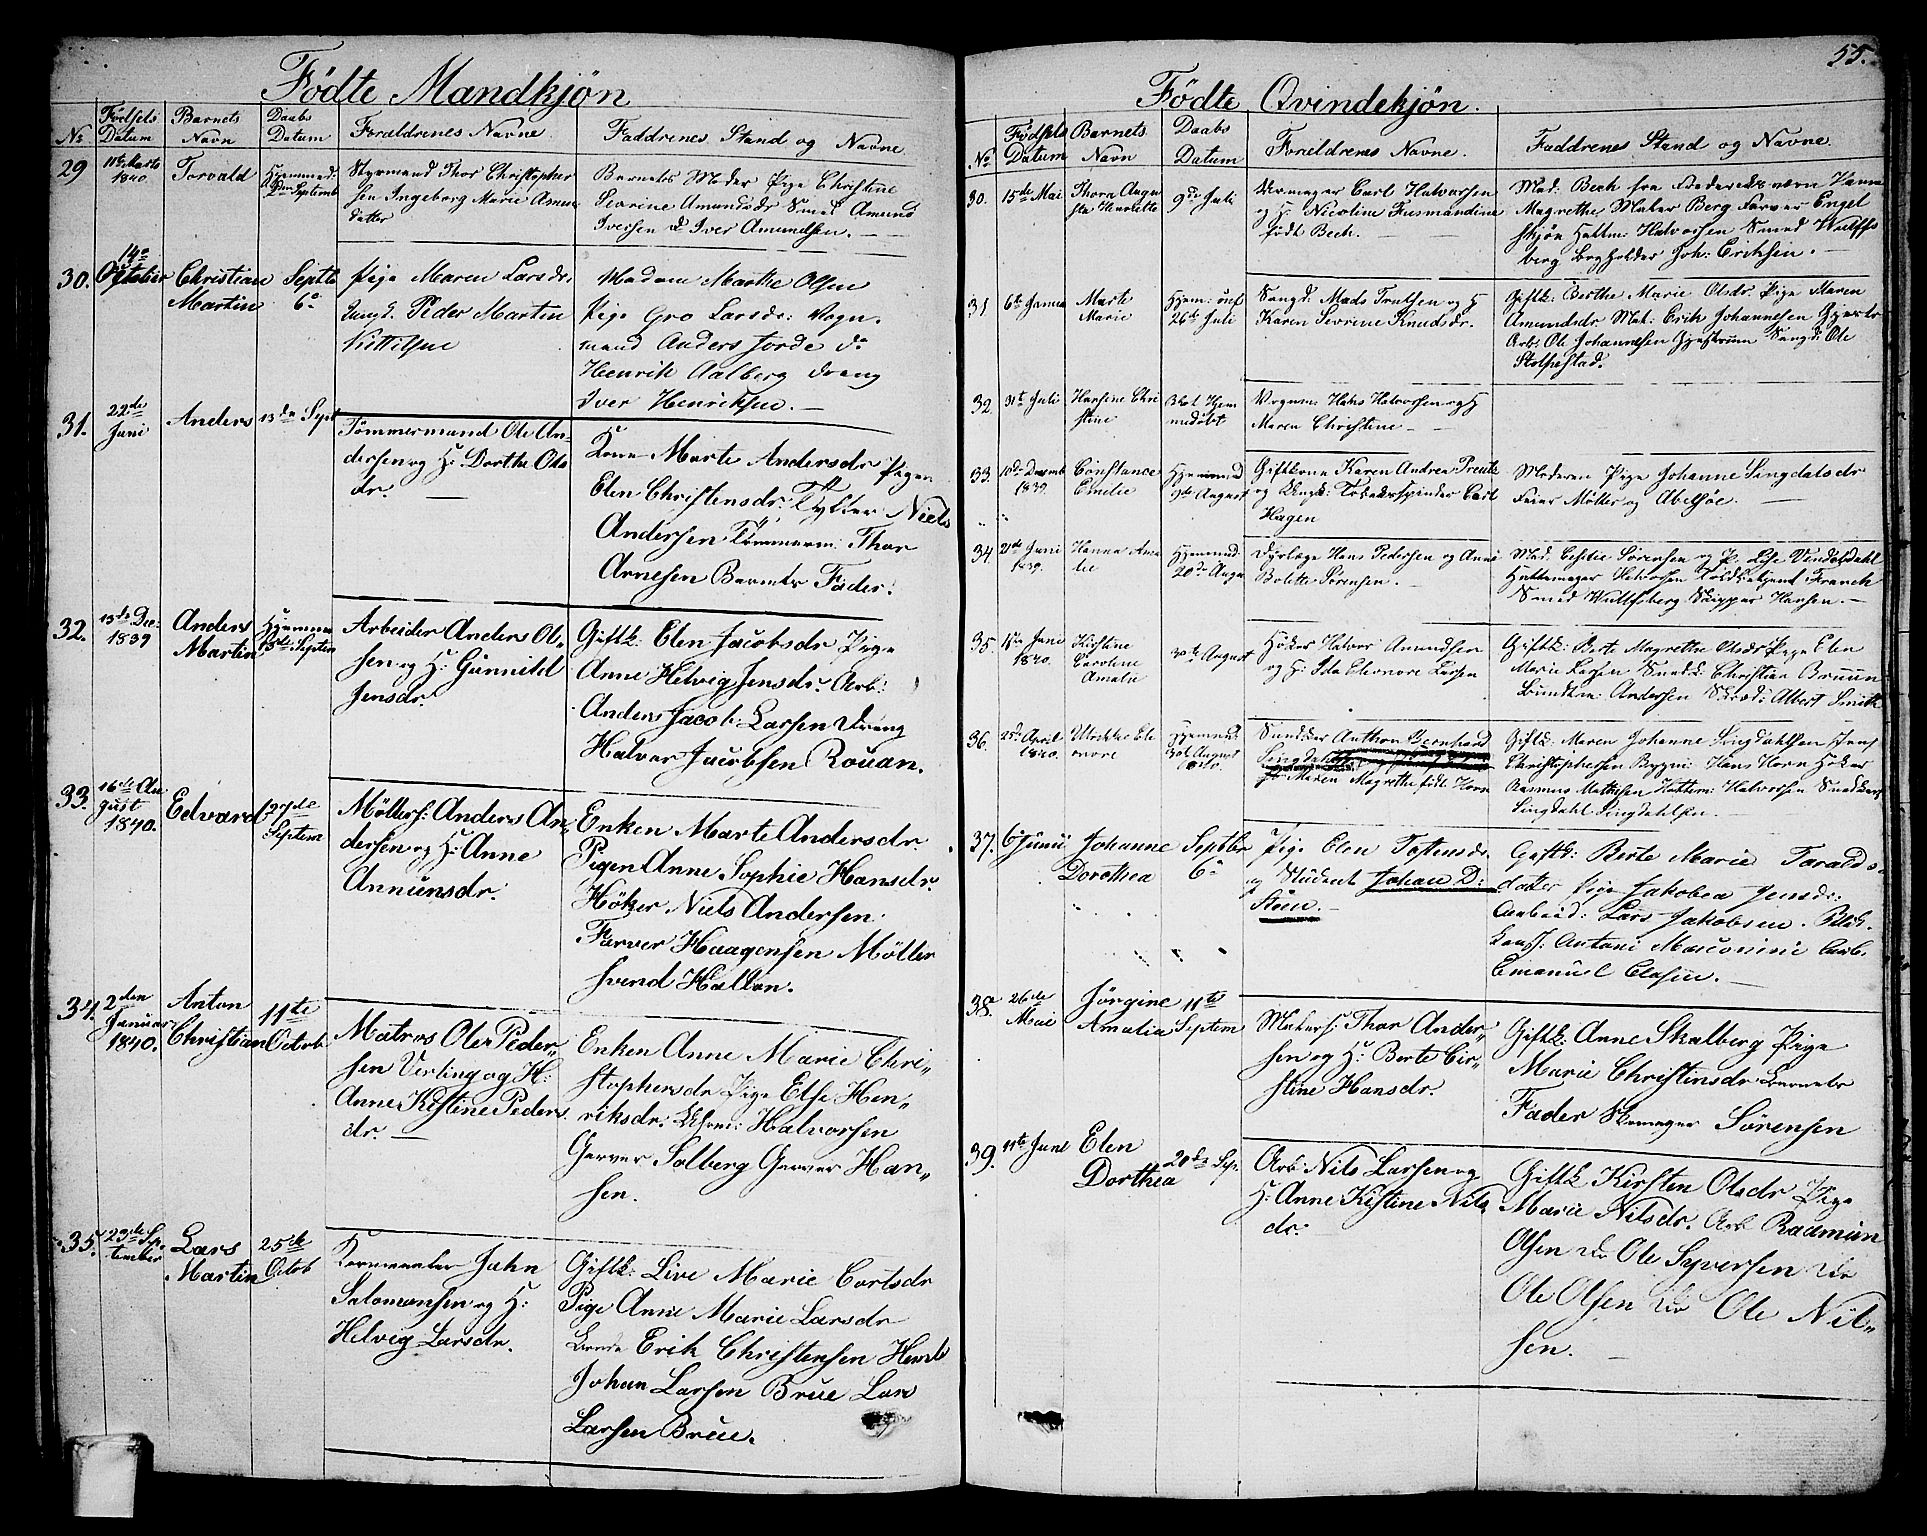 55.
Födte Mandkjön
No
Födsels Datum
Barnets Navn
Daabs Datum
Forældrenes Navne
Faddrenes Stand og Navne
29
11te Marts 1840.
Torvald
Hjemmed: Septemb
Styrmand Thor Christopher
sen Ingeborg Marie Amun
datter
Barnets Moder Pige Christine
Severine Amundsdr Smed Amund
Iversen & Iver Amundsen. —
30.
14de October
Christian Martin
Septbr 6te
Pige Maren Larsdr.
Ungk. Peder Martin
Kittilsen
Madam Marthe Olsen
Pige Gro Larsdr: Vogn-
mand Anders Jorde do
Henrik Aalberg Dreng
Iver Henriksen. —
31.
22de Juni
Anders
13de Sept
Tömmermand Ole An-
dersen og H: Dorthe Ols
dr. —
Kone Marte Andersdr Pigen
Elen Christensdr.
Andersen Tömmerm: Thor
Arnesen Barnets Fader.
32.
13de Dec: 1839
Anders Martin
Hjemme 13de Septem
Arbeider Anders Ol-
sen og H: Gunnild
Jensdr.
Giftk: Elen Jacobsdr Pige
Anne Helvig Jensdr. Arb:
Anders Jacob: Larsen Dreng
Halvor Jacobsen Rouan.
33.
16de Au
gust 1840.
Edvard
27de Septem
Möllers: Anders An-
dersen og H: Anne
Annunsdr.
Enken Marte Andersdr.
Pigen Anne Sophie Hansdr.
Höker Niels Andersen
Farver Haagensen Möller
svend Hallan.
34.
2den Januar 1840.
Anton Christian
11te Octob
Matros Ole Peder-
sen Verling og H:
Anne Kistine Peders
dr. —
Enken Anne Marie Chri-
stophersdr Pige Else Hen-
riksdr: Halvorsen
Garver Solberg Garver Han-
sen.
35.
23de Se-
ptember
Lars Martin
25de Octob
John
Salomonsen og H:
Helvig Larsdr.
Giftk: Live Marie Cortsdr
Pige Anne Marie Larsdr
Erik Christensen
Johan Larsen Brue Lars
Larsen Brue.
Födte Qvindekjön.
No
Födsels Datum
Barnets Navn
Daabs Datum
Forældrenes Navne.
Faddrenes Stand og Navne
30.
15de Mai
Thora Augu
sta Henriette
9de Juli
Urmager Carl Halvorsen
og H: Nicoline
födt Bech.
Mad: Bech fra Frederiksværn
Magrethe Berg Farver Engel
skjön Hattm: Halvorsen Smed Wulffs
berg Bogholder Joh: Eriksen. —
31
6te Januar
Mart: Marie
Hjem: 26de Juli
Mads Trulsen og H
Karen Severine Knudsdr.
Giftk: Berthe Marie Olsdr. Pige Maren
Amundsdr Mat: Erik Johannesen
Arb: Ole Johannesen Ole
Stolpestad.
32
31te Juli
Hansine Chri
stine
Hjem
medöbt
Vognm: Hans Halvorsen og H
Maren Christine —
33.
10de Decemb 1839.
Constance Emilie
Hjemmed 9de August
Giftkone Karen Andrea
og Ungk: Tobaksspinder Carl
Hagen
Moderen Pige Johanne Lingdalsdr
Feier Möller og Abelsöe. —
34.
21de Juni 1839.
Hanna Ama
lie
Hjemmed: 20de Augu
Dyrlæge Hans Pedersen og Anne
Bolette Sörensen. —
Mad. Cecilie Sörensen og P. Else Vindalsdahl
Hattemager Halvorsen Franck
Smed Wulfsberg Skipper Hansen. —
35.
Juni 1840.
Kistine Caroline Amalie
30te August
Höker Halvor Amundsen
og H: Ida Eleonore Larsen
Giftk: Berte Magrethe Olsdr Pige Elen
Marie Larsen Snedk: Christian Bruun
Bundtm: Andersen Albert Smith
36.
25de April 1840.
Ulrikke Ele
onore
Hjemmed: August
Snedker Anthon Bernhard
Maren Magrethe födt Horn
Giftk: Maren Johanne Lingdahlsen
Christophersen Bygm: Hans Horn Höker
Rasmus Mathisen Hattem: Halvorsen Snedker
Lingdahl Lingdahlsen. —
37.
6 Juni
Johanne Dorothea
Septbr 6te
Pige Elen Tostensdr.
og Student Johan D:
Stöen. —
Giftk: Berte Marie Tarald s-
datter Pige Jakobea Jensdr:
Arbeid: Lars Jakobsen.
Antoni Marconini Arb.
Emanuel Clasen. —
38.
26de Mai
Jörgine Amalia
11te Septem
Thor Ander-
sen og H: Berte Cir-
stine Hansdr.
Giftk: Anne Skalberg Pige
Marie Christensdr. Barnets
Fader Skomager Sörensen
39.
11te June
Elen Dorthea
20de Sep.
Arb: Nils Larsen og
H: Anne Kistine Nils
dr:
Giftk Kirsten Olsdr Pige
Marie Nilsdr. Arb Radmun
Olsen do Ole Syversen do
Ole Olsen do Ole Nil-
sen. —